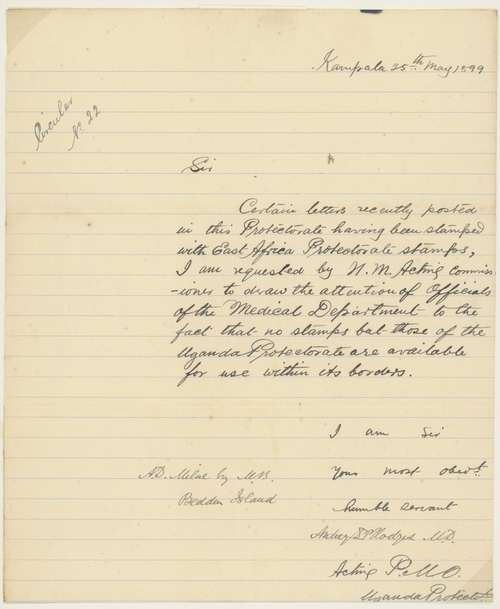 Kampala 25th May 1899
Circular
No. 22
Sir
Certain letters recently posted
in this Protectorate having been stamped
with East Africa Protectorate stamps,
I am requested by H.M. Acting Commiss
-ioner to draw the attention of Officials
of the Medical Department to the
fact that no stamps but those of the
Uganda Protectorate are available
for use within its borders.
I am Sir
Your most obedt
humble servant
Hodges M.D.
Acting P.M.O.
Uganda Protectorate
A.D. Milne M.B.
Island